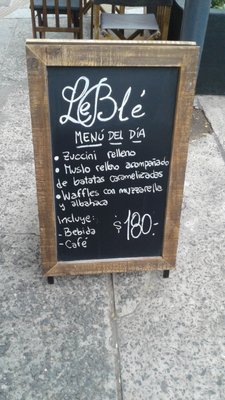 LeBlé
MENÚ DEL DÍA
• Zuccini relleno
• Muslo relleno acompañado
de batatas caramelizadas
• Waffles con muzzarella
y albahaca
Incluye:
- Bebida
- Café
$180.-